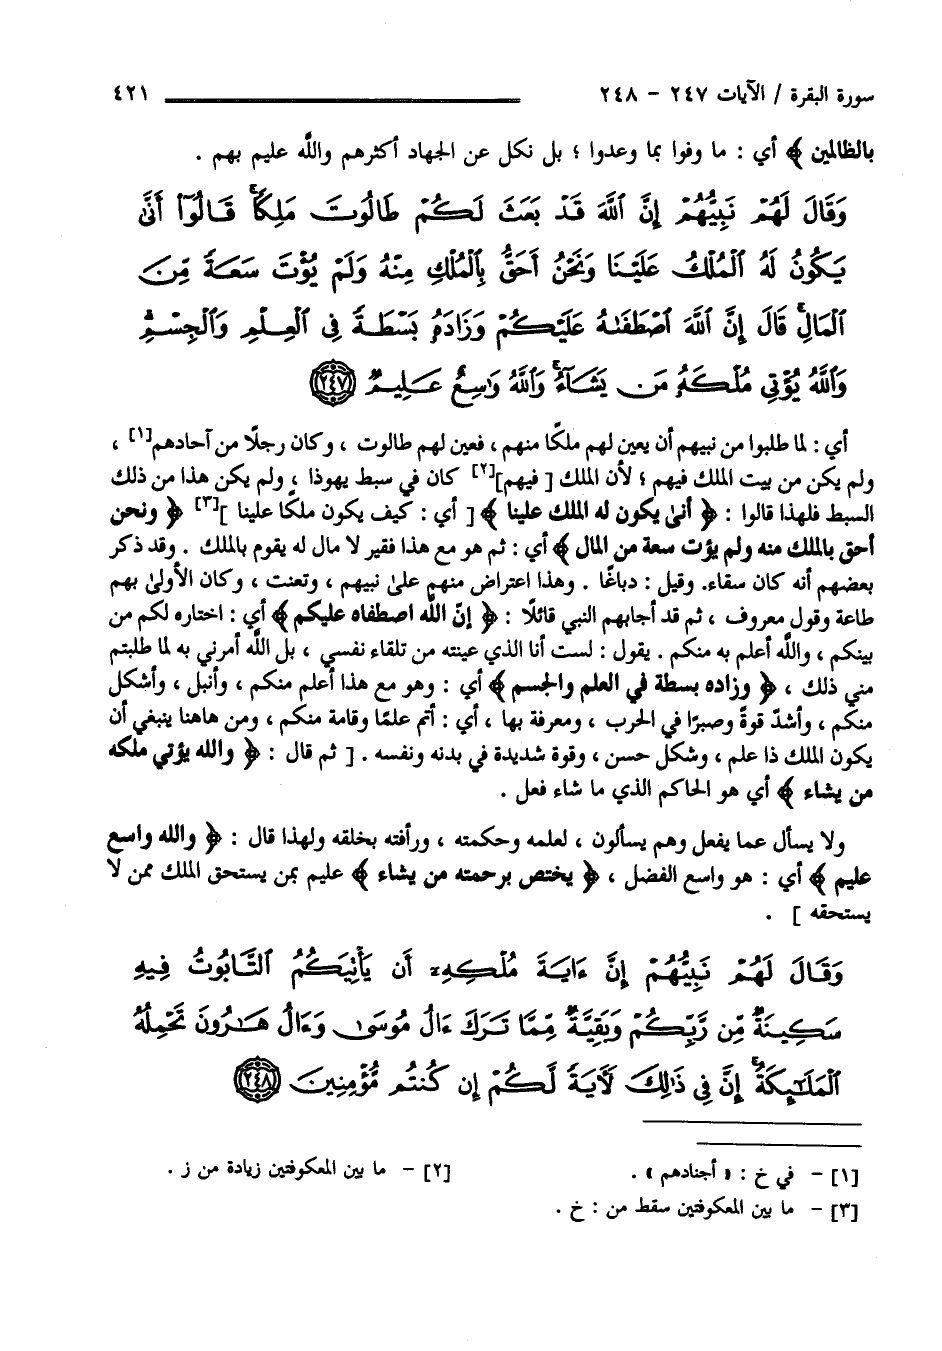 سورة البقرة / الآيات ٢٤٧ - ٢٤٨ ٤٢١
بالظالمين ﴾ أي : ما وفوا بما وعدوا ؛ بل نكل عن الجهاد أكثرهم واللَّه عليم بهم .
وَقَالَ لَهُمْ نَبِيُّهُمْ إِنَّ ٱللَّهَ قَدْ بَعَثَ لَكُمْ طَالُوتَ مَلِكًا ۚ قَالُوٓا۟ أَنَّىٰ
يَكُونُ لَهُ ٱلْمُلْكُ عَلَيْنَا وَنَحْنُ أَحَقُّ بِٱلْمُلْكِ مِنْهُ وَلَمْ يُؤْتَ سَعَةً مِّنَ
ٱلْمَالِ ۚ قَالَ إِنَّ ٱللَّهَ ٱصْطَفَىٰهُ عَلَيْكُمْ وَزَادَهُۥ بَسْطَةً فِى ٱلْعِلْمِ وَٱلْجِسْمِ ۖ
وَٱللَّهُ يُؤْتِى مُلْكَهُۥ مَن يَشَآءُ ۚ وَٱللَّهُ وَٰسِعٌ عَلِيمٌ ﴿٢٤٧﴾
أي : لما طلبوا من نبيهم أن يعين لهم ملكًا منهم ، فعين لهم طالوت ، وكان رجلًا من آحادهم[١] ،
ولم يكن من بيت الملك فيهم ؛ لأن الملك [ فيهم][٢] كان في سبط يهوذا ، ولم يكن هذا من ذلك
السبط فلهذا قالوا : ﴿ أنىٰ يكون له الملك علينا ﴾ [ أي : كيف يكون ملكًا علينا ][٣] ﴿ ونحن
أحق بالملك منه ولم يؤت سعة من المال ﴾ أي : ثم هو مع هذا فقير لا مال له يقوم بالملك . وقد ذكر
بعضهم أنه كان سقاء. وقيل : دباغًا . وهذا اعتراض منهم علىٰ نبيهم ، وتعنت ، وكان الأولىٰ بهم
طاعة وقول معروف ، ثم قد أجابهم النبي قائلًا : ﴿ إنّ اللَّه اصطفاه عليكم ﴾ أي : اختاره لكم من
بينكم ، واللَّه أعلم به منكم . يقول : لست أنا الذي عينته من تلقاء نفسي ، بل اللَّه أمرني به لما طلبتم
مني ذلك ، ﴿ وزاده بسطة في العلم والجسم ﴾ أي : وهو مع هذا أعلم منكم ، وأنبل ، وأشكل
منكم ، وأشدّ قوةً وصبرًا في الحرب ، ومعرفة بها ، أي : أتم علمًا وقامة منكم ، ومن هاهنا ينبغي أن
يكون الملك ذا علم ، وشكل حسن ، وقوة شديدة في بدنه ونفسه . [ ثم قال : ﴿ والله يؤتي ملكه
من يشاء ﴾ أي هو الحاكم الذي ما شاء فعل .
ولا يسأل عما يفعل وهم يسألون ، لعلمه وحكمته ، ورأفته بخلقه ولهذا قال : ﴿ والله واسع
عليم ﴾ أي : هو واسع الفضل ، ﴿ يختص برحمته من يشاء ﴾ عليم بمن يستحق الملك ممن لا
يستحقه ] .
وَقَالَ لَهُمْ نَبِيُّهُمْ إِنَّ ءَايَةَ مُلْكِهِۦٓ أَن يَأْتِيَكُمُ ٱلتَّابُوتُ فِيهِ
سَكِينَةٌ مِّن رَّبِّكُمْ وَبَقِيَّةٌ مِّمَّا تَرَكَ ءَالُ مُوسَىٰ وَءَالُ هَٰرُونَ تَحْمِلُهُ
ٱلْمَلَٰٓئِكَةُ ۚ إِنَّ فِى ذَٰلِكَ لَءَايَةً لَّكُمْ إِن كُنتُم مُّؤْمِنِينَ ﴿٢٤٨﴾
[١] - في خ : « أجنادهم » . [٢] - ما بين المعكوفتين زيادة من ز .
[٣] - ما بين المعكوفتين سقط من : خ .